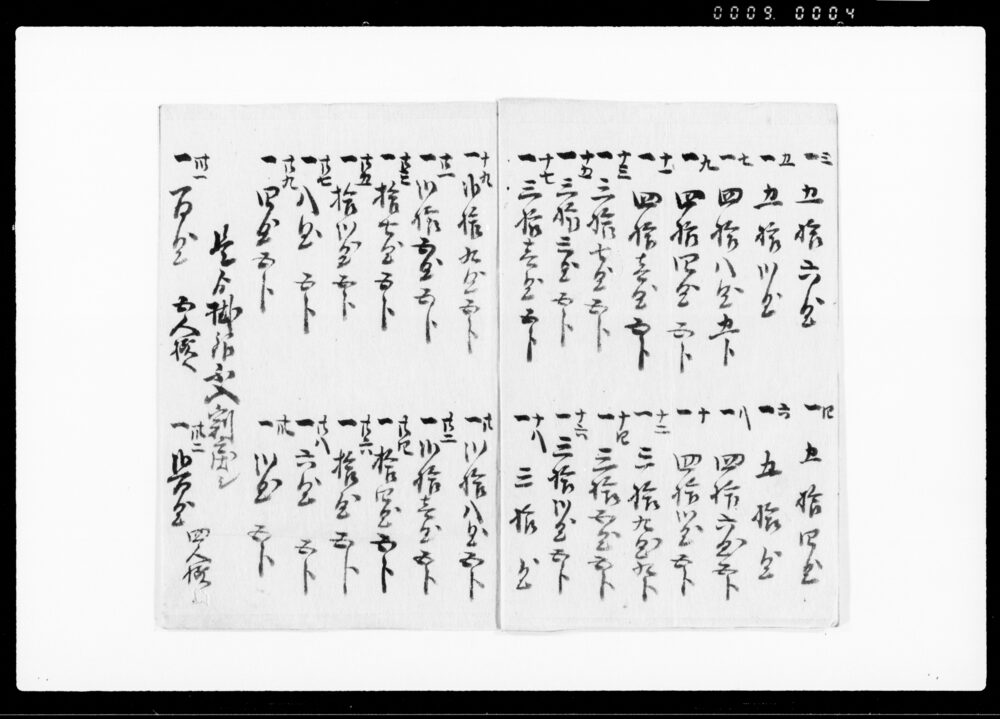 三 一 五拾六匁
四 一 五拾四匁
五 一 五拾弐匁
六 一 五拾匁
七 一 四拾八匁五卜
八 一 四拾六匁五卜
九 一 四拾四匁五卜
十 一 四拾弐匁五卜
十一 一 四拾壱匁五卜
十二 一 三拾九匁九卜
十三 一 三拾七匁五卜
十四 一 三拾五匁五卜
十五 一 三拾三匁五卜
十六 一 三拾弐匁五卜
十七 一 三拾壱匁五卜
十八 一 三拾匁
十九 一 弐拾九匁五卜
廿 一 弐拾八匁五卜
廿一 一 弐拾五匁五卜
廿二 一 弐拾壱匁五卜
廿三 一 拾七匁五卜
廿四 一 拾四匁五卜
廿五 一 拾弐匁五卜
廿六 一 拾匁五卜
廿七 一 八匁五卜
廿八 一 六匁五卜
廿九 一 四匁五卜
卅 一 弐匁五卜
是ゟ掛 不入割戻し
卅一 一 百匁 五人
卅二 一 匁 四人